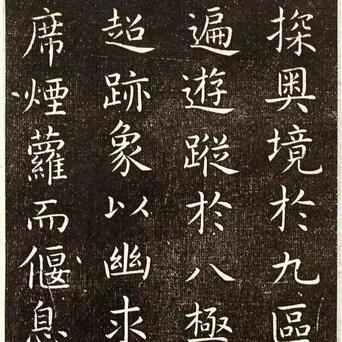 探奥境於九區
遍遊蹤於八極
超跡象以幽求
席煙蘿而偃息